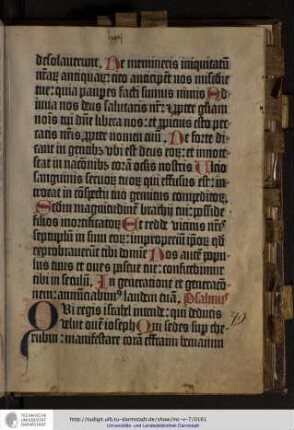 desolauerunt. Ne memineris iniquitatū
nr̄ar̄ antiquar̄: cito anticipēt nos mis̄cdie
tue: quia paup̄es facti sumus nimis Ad
iuua nos deus salutaris nr̄: ꝛ ꝓpter gl̄iam
nois̄ tui dn̄e libera nos: et ꝓpicius esto pec
catis nr̄is, ꝓpter nomen tuū. Ne forte di
cant in gentibꝫ vbi est deus eoꝝ: et innote
scat in nac̄onibꝫ corā oclis nostris Ulcio
sanguinis seruoꝝ tuoꝝ qui effusus est: in
troeat in cōspectu tuo gemitus compeditoꝝ.
Scdm magnitudinē brachij tui: posside
filios mortificatoꝝ Et redde vicinis nr̄is
septuplū in sinu eoꝝ: improperiū ip̄oꝝ qd
exprobrauerūt tibi domīe Nos autē popu
lus tuus et oues pascue tue: confitebimur
tibi in seculū. In generatione et generac̄o
nem: annūciabimꝰ laudem tuā. Psalmus
Qvi regis israhel intende: qui deducis 79
velut ouē ioseph Qui sedes sup che
rubin: manifestare corā effraim beniamin
TECHNISCHE UNIVERSITÄT DARMSTADT
http://tudigit.ulb.tu-darmstadt.de/show/inc-v-7/0161
Universitäts- und Landesbibliothek Darmstadt